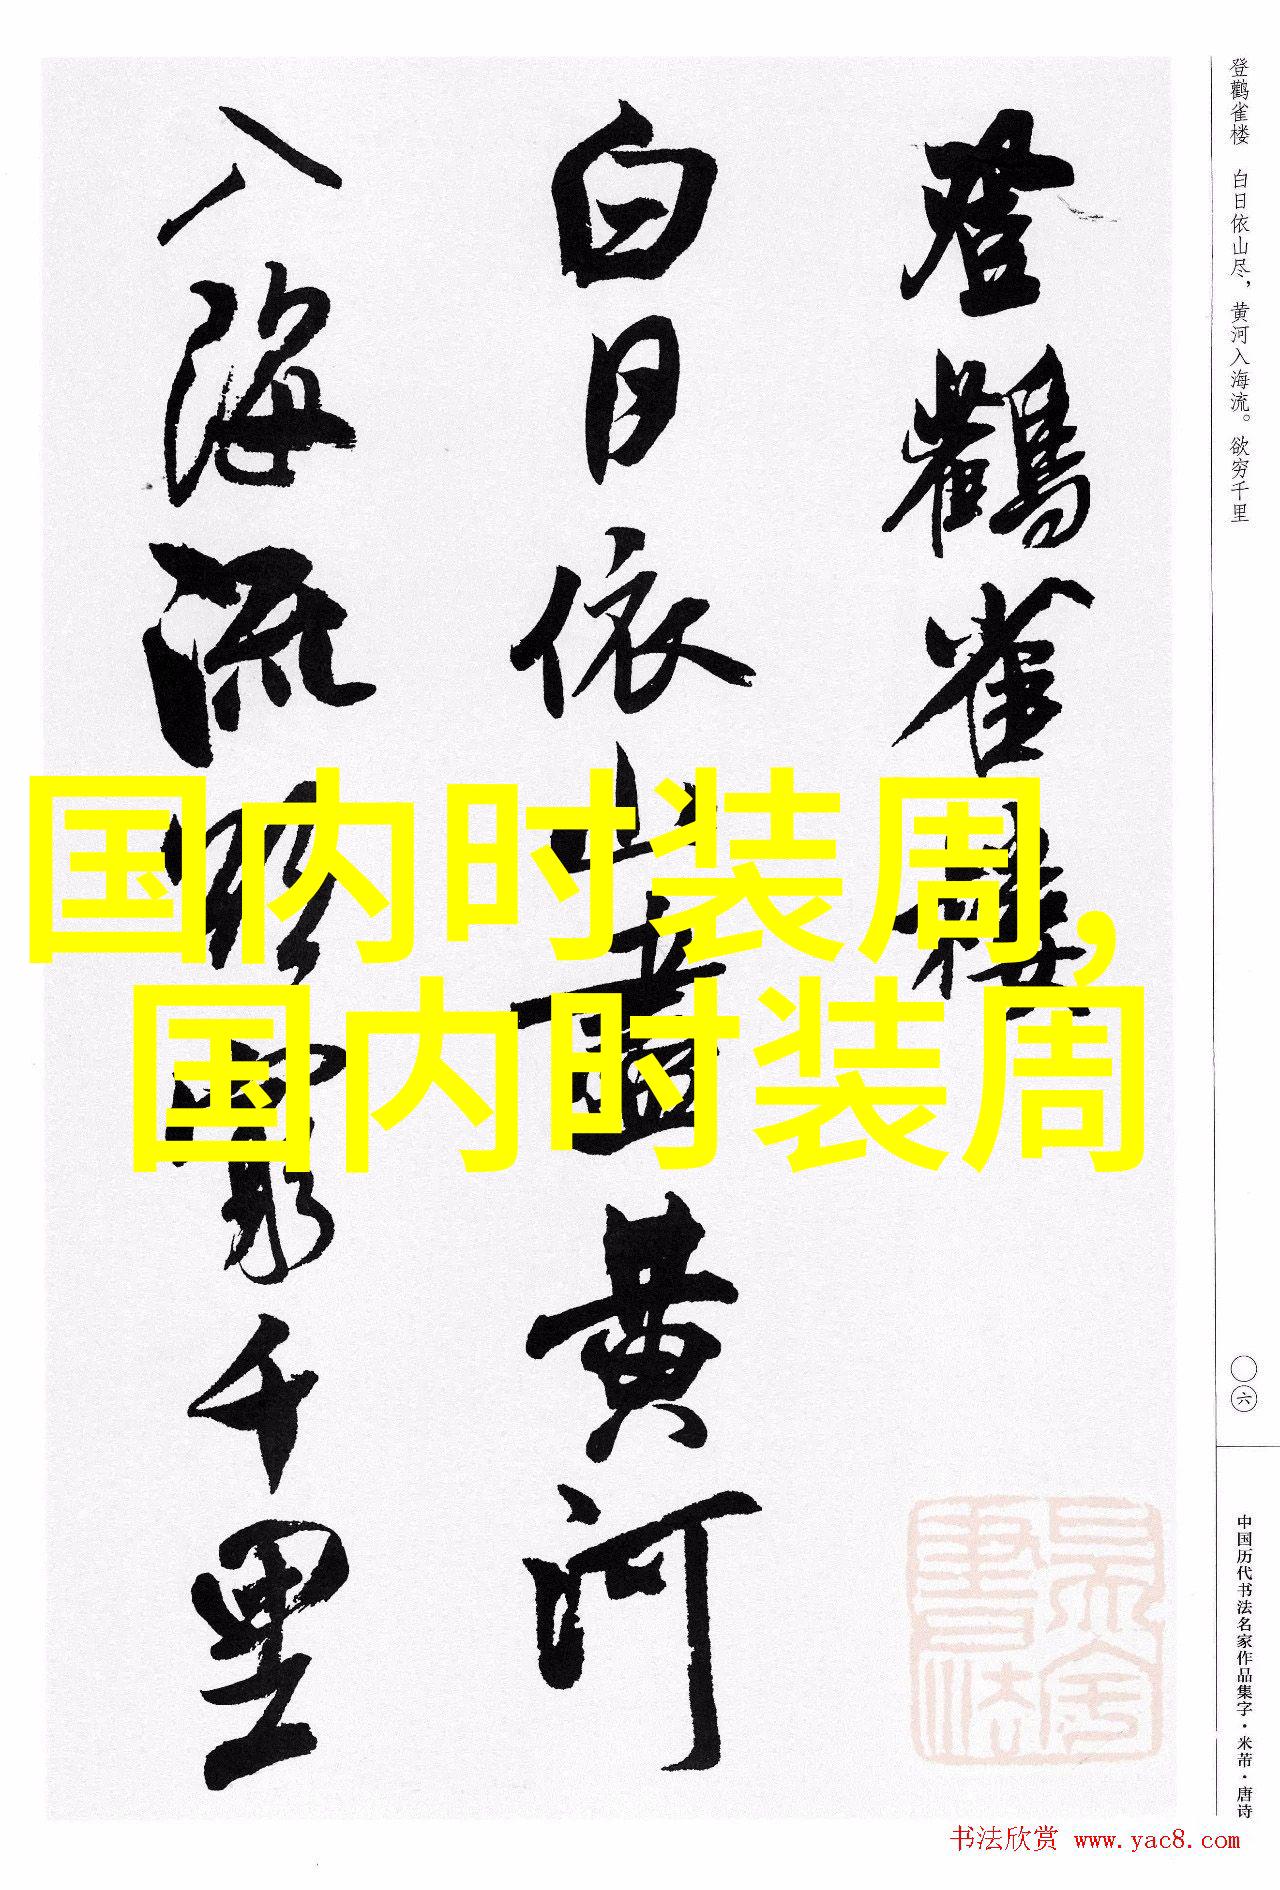 登鹳雀楼 白日依山尽，黄河入海流。欲穷千里
登鸛雀樓
白日依山盡黃河
入海流欲窮千里
国内时装周，
国内时装周
六
中国历代书法名家作品集字·米芾·唐诗
书法欣赏 www.yac8.com